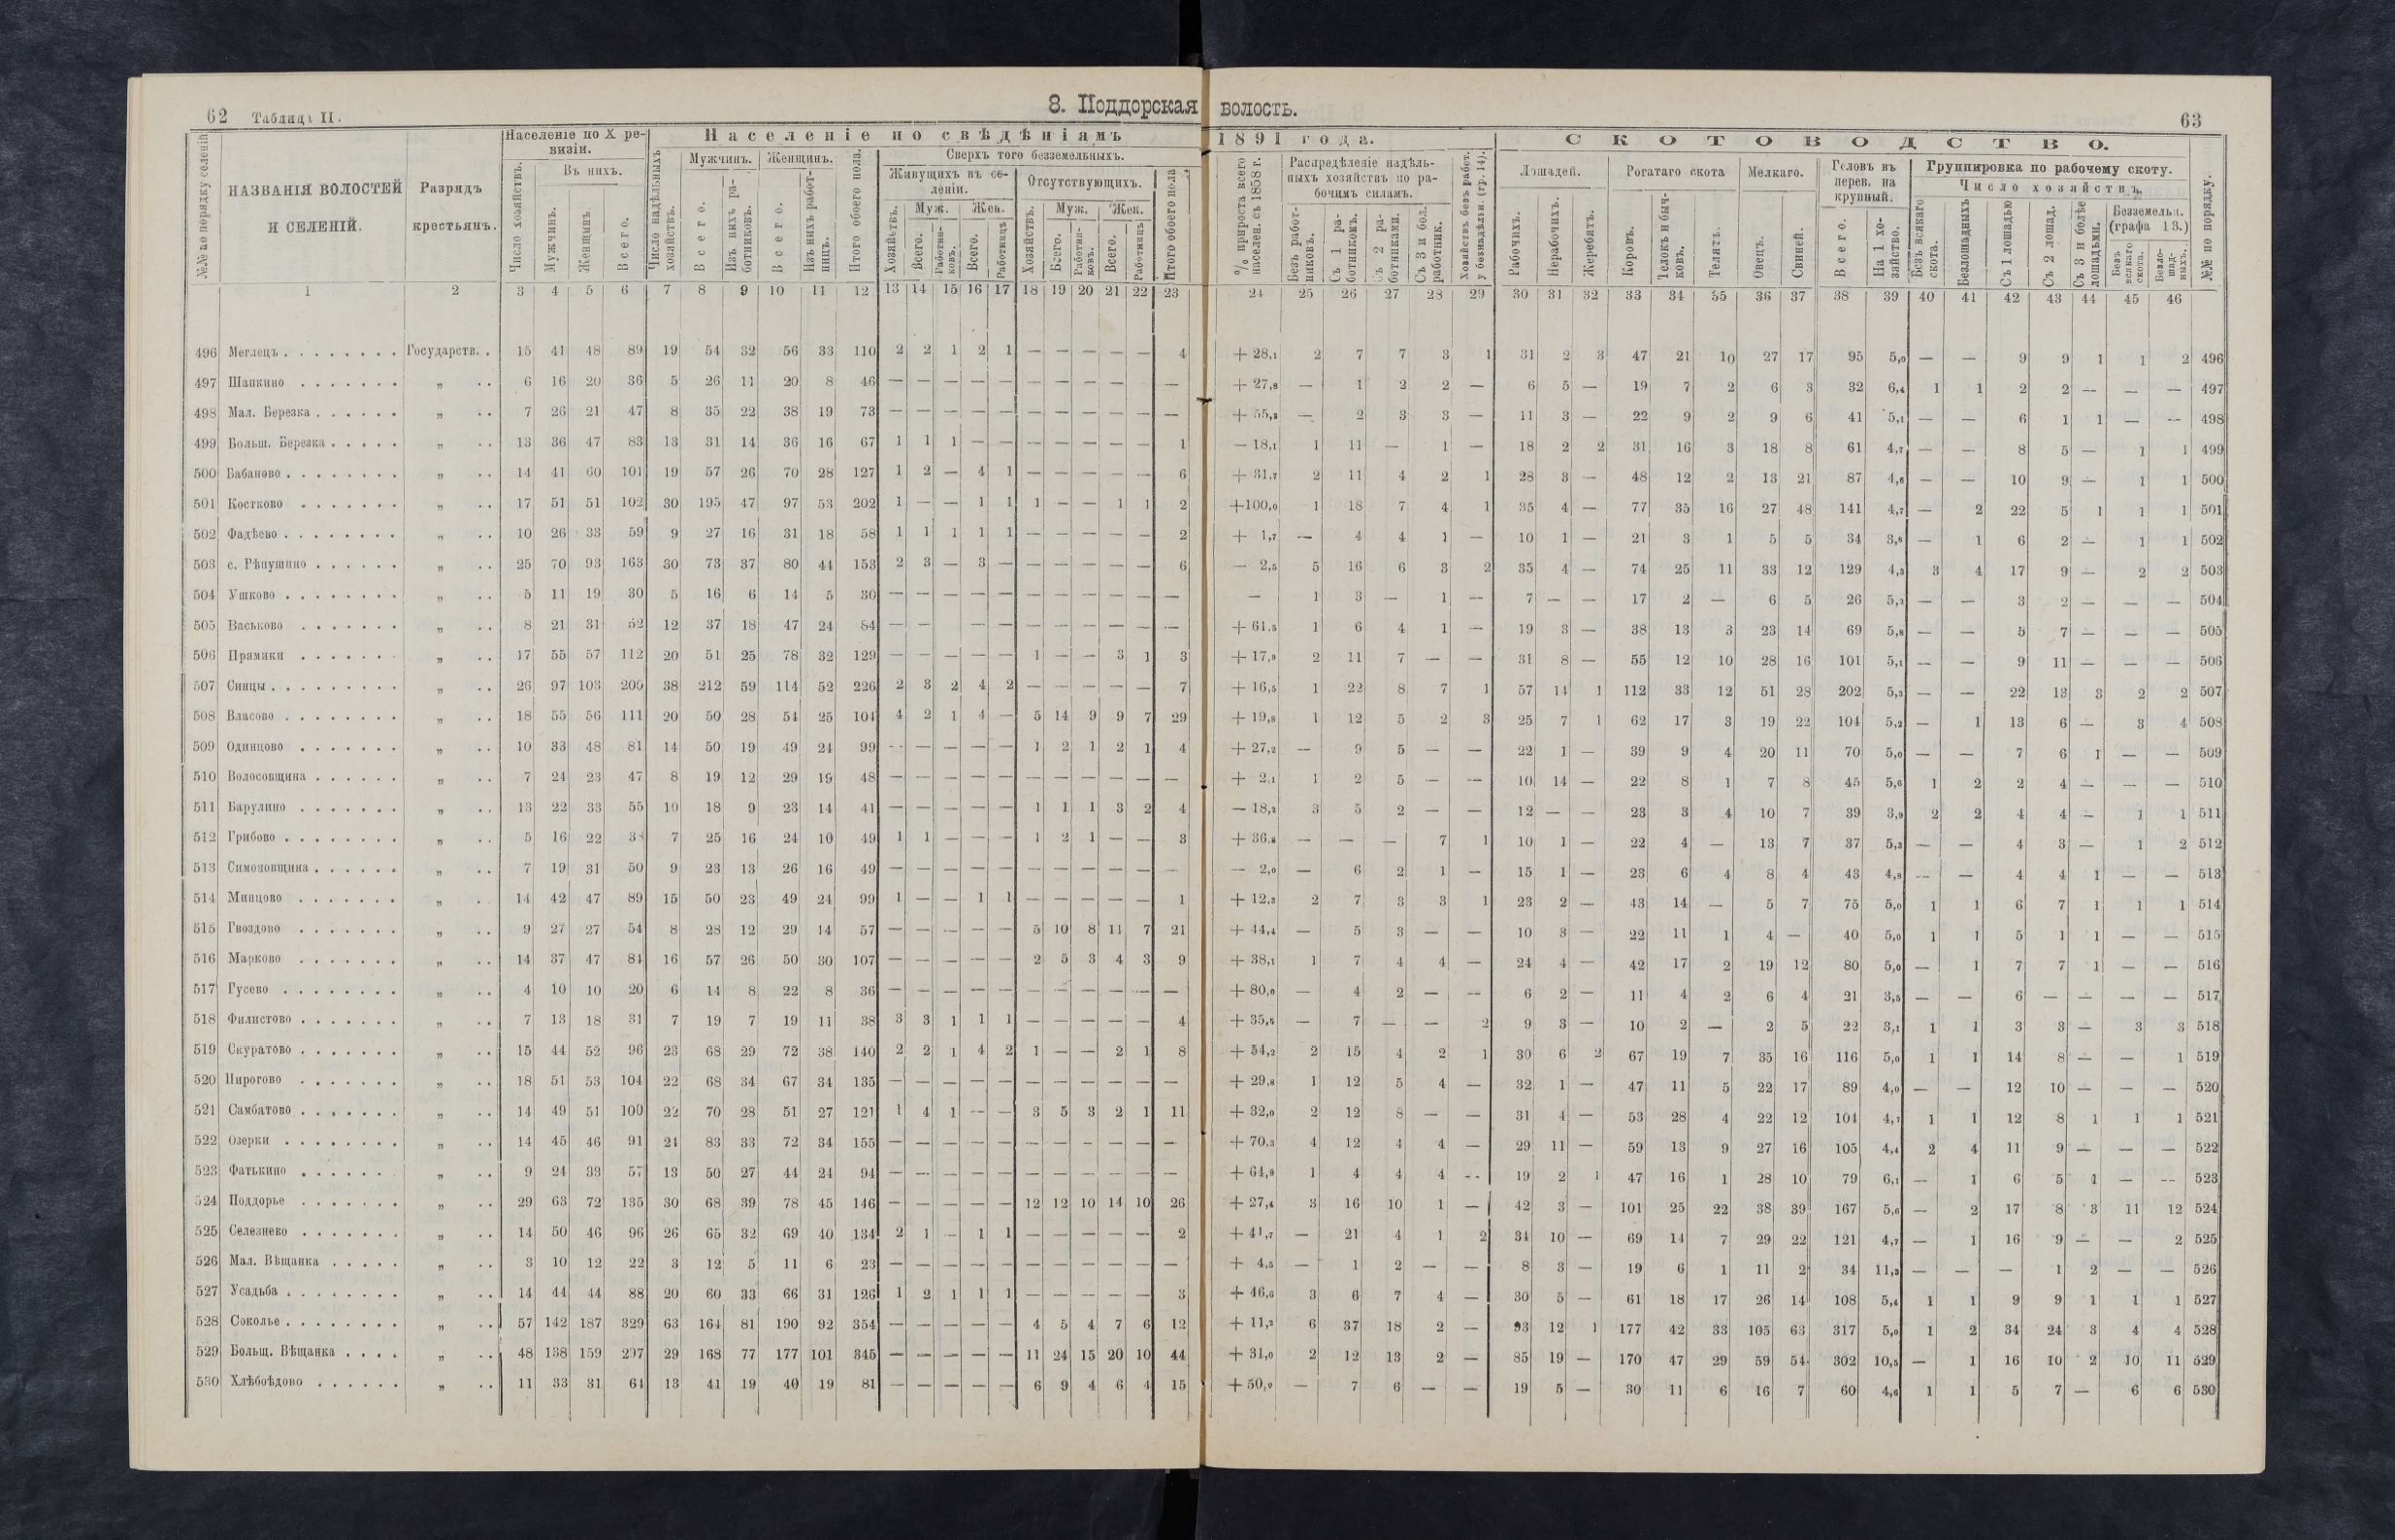 62 Таблица II.
8. Поддорская волость.
63
№№ по порядку селеній
НАЗВАНІЯ ВОЛОСТЕЙ И СЕЛЕНІЙ.
Разрядъ крестьянъ.
Населеніе по X ревизіи.
Число хозяйствъ.
Въ нихъ.
Мужчинъ.
Женщинъ.
Всего.
Населеніе по свѣдѣніямъ 1891 года.
Число надѣльныхъ хозяйствъ.
Мужчинъ.
Всего.
Изъ нихъ работниковъ.
Женщинъ.
Всего.
Изъ нихъ работницъ.
Итого обоего пола.
Сверхъ того безземельныхъ.
Живущихъ въ селеніи.
Отсутствующихъ.
Итого обоего пола
% прироста всего населен. съ 1858 г.
Распредѣленіе надѣльныхъ хозяйствъ по рабочимъ силамъ.
Безъ работниковъ.
Съ 1 работникомъ.
Съ 2 работниками.
Съ 3 и бол. работник.
Хозяйствъ безъ работ. у безнадѣльн. (гр. 14).
СКОТОВОДСТВО.
Лошадей.
Рабочихъ.
Нерабочихъ.
Жеребятъ.
Рогатаго скота
Коровъ.
Телокъ и бычковъ.
Телятъ.
Мелкаго.
Овецъ.
Свиней.
Головъ въ перев. на крупный.
Всего.
На 1 хозяйство.
Группировка по рабочему скоту.
Число хозяйствъ.
Безъ всякаго скота.
Безлошадныхъ
Съ 1 лошадью
Съ 2 лошад.
Съ 3 и болѣе лошадьми.
Безземельн. (графа 13.)
Безъ всякаго скота.
Безлошадныхъ.
№№ по порядку.
1 2 3 4 5 6 7 8 9 10 11 12 13 14 15 16 17 18 19 20 21 22 23 24 25 26 27 28 29 30 31 32 33 34 35 36 37 38 39 40 41 42 43 44 45 46
496 Меглецъ Государств. 15 41 48 89 19 54 32 56 33 110 2 2 1 2 1 — — — — — 4 + 28,1 2 7 7 3 1 31 2 3 47 21 10 27 17 95 5,0 — — 9 9 1 1 2 496
497 Шапкино „ 6 16 20 36 5 26 11 20 8 46 — — — — — — — — — — — + 27,8 — 1 2 2 — 6 5 — 19 7 2 6 3 32 6,4 1 1 2 2 — — — 497
498 Мал. Березка „ 7 26 21 47 8 35 22 38 19 73 — — — — — — — — — — — + 55,3 — 2 3 3 — 11 3 — 22 9 2 9 6 41 5,1 — — 6 1 1 — — 498
499 Больш. Березка „ 13 36 47 83 13 31 14 36 16 67 1 1 1 — — — — — — — 1 — 18,1 1 11 — 1 — 18 2 2 31 16 3 18 8 61 4,7 — — 8 5 — 1 1 499
500 Бабаново „ 14 41 60 101 19 57 26 70 28 127 1 2 — 4 1 — — — — — 6 + 31,7 2 11 4 2 1 28 3 — 48 12 2 13 21 87 4,6 — — 10 9 — 1 1 500
501 Костково „ 17 51 51 102 30 195 47 97 53 202 1 — — 1 1 1 — — 1 1 2 +100,0 1 18 7 4 1 35 4 — 77 35 16 27 48 141 4,7 — 2 22 5 1 1 1 501
502 Фадѣево „ 10 26 33 59 9 27 16 31 18 58 1 1 1 1 1 — — — — — 2 + 1,7 — 4 4 1 — 10 1 — 21 3 1 5 5 34 3,8 — 1 6 2 — 1 1 502
503 с. Рѣпушино „ 25 70 93 163 30 73 37 80 44 153 2 3 — 3 — — — — — — 6 — 2,5 5 16 6 3 2 35 4 — 74 25 11 33 12 129 4,3 3 4 17 9 — 2 2 503
504 Ушково „ 5 11 19 30 5 16 6 14 5 30 — — — — — — — — — — — — 1 3 — 1 — 7 — — 17 2 — 6 5 26 5,2 — — 3 2 — — — 504
505 Васьково „ 8 21 31 52 12 37 18 47 24 84 — — — — — — — — — — + 61,5 1 6 4 1 — 19 3 — 38 13 3 23 14 69 5,8 — — 5 7 — — — 505
506 Прямики „ 17 55 57 112 20 51 25 78 32 129 — — — — — 1 — — 3 1 3 + 17,9 2 11 7 — — 31 8 — 55 12 10 28 16 101 5,1 — — 9 11 — — — 506
507 Синцы „ 26 97 103 200 38 212 59 114 52 226 2 3 2 4 2 — — — — — 7 + 16,5 1 22 8 7 1 57 11 1 112 33 12 51 28 202 5,3 — — 22 13 3 2 2 507
508 Власово „ 18 55 56 111 20 50 28 54 25 104 4 2 1 4 — 5 14 9 9 7 29 + 19,8 1 12 5 2 3 25 7 1 62 17 3 19 22 104 5,2 — 1 13 6 — 3 4 508
509 Одинцово „ 10 33 48 81 14 50 19 49 24 99 — — — — — 1 2 1 2 1 4 + 27,2 — 9 5 — — 22 1 — 39 9 4 20 11 70 5,0 — — 7 6 1 — — 509
510 Волосовщина „ 7 24 23 47 8 19 12 29 19 48 — — — — — — — — — — — + 2,1 1 2 5 — — 10 14 — 22 8 1 7 8 45 5,6 1 2 2 4 — — — 510
511 Барулино „ 13 22 33 55 10 18 9 23 14 41 — — — — — 1 1 1 3 2 4 — 18,2 3 5 2 — — 12 — — 23 3 4 10 7 39 3,9 2 2 4 4 — 1 1 511
512 Грибово „ 5 16 22 38 7 25 16 24 10 49 1 1 — — — 1 2 1 — — 3 + 36,8 — — — 7 1 10 1 — 22 4 — 13 7 37 5,3 — — 4 3 — 1 2 512
513 Симоновщина „ 7 19 31 50 9 23 13 26 16 49 — — — — — — — — — — — — 2,0 — 6 2 1 — 15 1 — 23 6 4 8 4 43 4,8 — — 4 4 1 — — 513
514 Минцово „ 14 42 47 89 15 50 23 49 24 99 1 — — 1 1 — — — — — 1 + 12,3 2 7 3 3 1 23 2 — 43 14 — 5 7 75 5,0 1 1 6 7 1 1 1 514
515 Гвоздово „ 9 27 27 54 8 28 12 29 14 57 — — — — — 5 10 8 11 7 21 + 44,4 — 5 3 — — 10 3 — 22 11 1 4 — 40 5,0 1 1 5 1 1 — — 515
516 Марково „ 14 37 47 84 16 57 26 50 30 107 — — — — — 2 5 3 4 3 9 + 38,1 1 7 4 4 — 24 4 — 42 17 2 19 12 80 5,0 — 1 7 7 1 — — 516
517 Гусево „ 4 10 10 20 6 14 8 22 8 36 — — — — — — — — — — — + 80,0 — 4 2 — — 6 2 — 11 4 2 6 4 21 3,5 — — 6 — — — — 517
518 Филистово „ 7 13 18 31 7 19 7 19 11 38 3 3 1 1 1 — — — — — 4 + 35,5 — 7 — — 2 9 3 — 10 2 — 2 5 22 3,1 1 1 3 3 — 3 3 518
519 Скуратово „ 15 44 52 96 23 68 29 72 38 140 2 2 1 4 2 1 — — 2 1 8 + 54,2 2 15 4 2 1 30 6 2 67 19 7 35 16 116 5,0 1 1 14 8 — — 1 519
520 Пирогово „ 18 51 53 104 22 68 34 67 34 135 — — — — — — — — — — — + 29,8 1 12 5 4 — 32 1 — 47 11 5 22 17 89 4,0 — — 12 10 — — — 520
521 Самбатово „ 14 49 51 100 22 70 28 51 27 121 1 4 1 — — 3 5 3 2 1 11 + 32,0 2 12 8 — — 31 4 — 53 28 4 22 12 104 4,7 1 1 12 8 1 1 1 521
522 Озерки „ 14 45 46 91 24 83 33 72 34 155 — — — — — — — — — — — + 70,3 4 12 4 4 — 29 11 — 59 13 9 27 16 105 4,4 2 4 11 9 — — — 522
523 Фатькино „ 9 24 33 57 13 50 27 44 24 94 — — — — — — — — — — — + 64,9 1 4 4 4 — 19 2 1 47 16 1 28 10 79 6,1 — 1 6 5 1 — — 523
524 Поддорье „ 29 63 72 135 30 68 39 78 45 146 — — — — — 12 12 10 14 10 26 + 27,4 3 16 10 1 — 42 3 — 101 25 22 38 39 167 5,6 — 2 17 8 3 11 12 524
525 Селезнево „ 14 50 46 96 26 65 32 69 40 134 2 1 — 1 1 — — — — — 2 + 41,7 — 21 4 1 2 34 10 — 69 14 7 29 22 121 4,7 — 1 16 9 — — 2 525
526 Мал. Вѣщанка „ 3 10 12 22 3 12 5 11 6 23 — — — — — — — — — — — + 4,5 — 1 2 — — 8 3 — 19 6 1 11 2 34 11,3 — — — 1 2 — — 526
527 Усадьба „ 14 44 44 88 20 60 33 66 31 126 1 2 1 1 1 — — — — — 3 + 46,6 3 6 7 4 — 30 5 — 61 18 17 26 14 108 5,4 1 1 9 9 1 1 1 527
528 Соколье „ 57 142 187 329 63 164 81 190 92 354 — — — — — 4 5 4 7 6 12 + 11,2 6 37 18 2 — 93 12 1 177 42 33 105 63 317 5,0 1 2 34 24 3 4 4 528
529 Больщ. Вѣщанка „ 48 138 159 297 29 168 77 177 101 345 — — — — — 11 24 15 20 10 44 + 31,0 2 12 13 2 — 85 19 — 170 47 29 59 54 302 10,5 — 1 16 10 2 10 11 529
530 Хлѣбоѣдово „ 11 33 31 64 13 41 19 40 19 81 — — — — — 6 9 4 6 4 15 + 50,0 — 7 6 — — 19 5 — 30 11 6 16 7 60 4,6 1 1 5 7 — 6 6 530